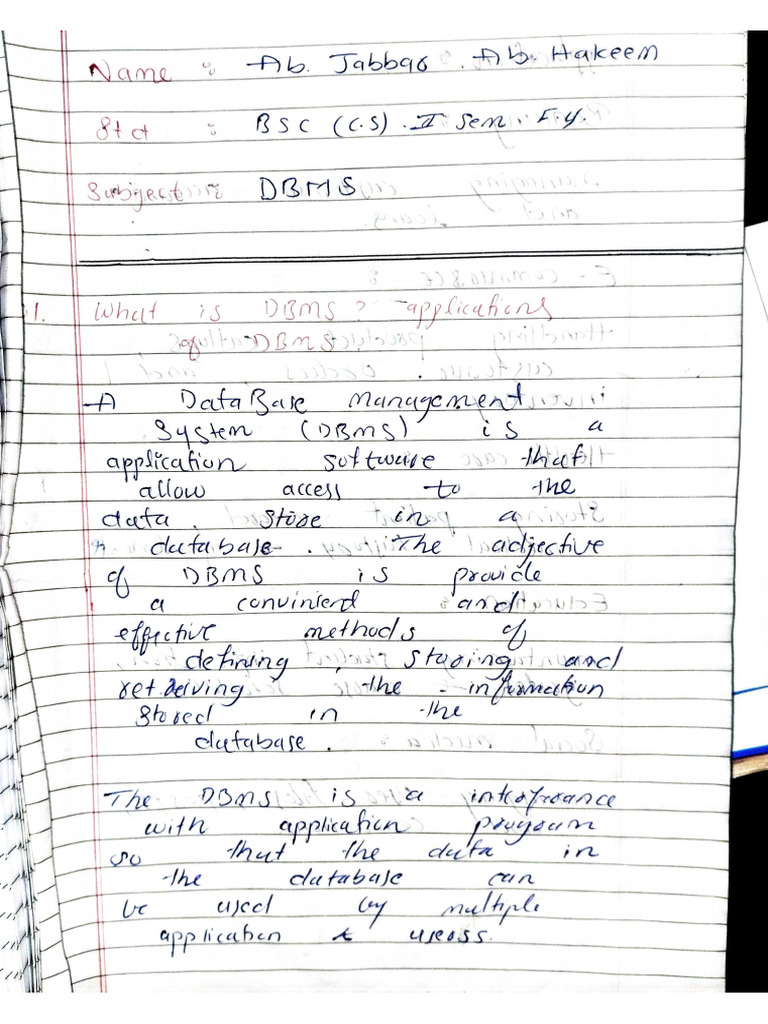 Name : Ab. Jabbar . Ab. Hakeem
Std : BSC (C.S) . II Sem. F.y.
Subject : DBMS
1. What is DBMS ? applications
of DBMS.
A DataBase management
System (DBMS) is a
application software that
allow access to the
data . store in a
database . The adjective
of DBMS is provide
a convinierd and
effective methods of
defining , storing and
retrieving the information
stored in the
database .
The DBMS is a interfrance
with application program
so that the data in
the database can
be used by multiple
application & users.